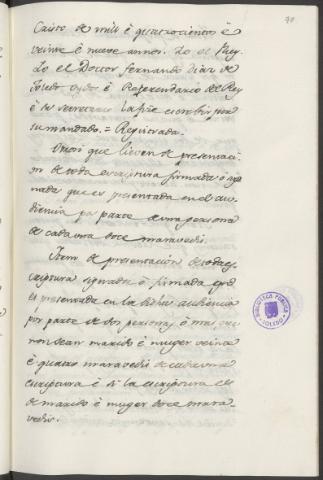 70
Cristo de mill è quatrocientos è
veinte è nueve annos. Yo el Rey.
Yo el Doctor Fernando Diaz de
Toledo oydor è Referendario del Rey
è su secretario la fize escribir por
su mandado. = Registrada.
Otrosi que lieven de presentaci-
on de toda escriptura firmada ò sig-
nada que es presentada en el au-
diencia por parte de una persona
de cada una doce maravedis.
Item de presentación de toda es-
criptura signada ò firmada que
es presentada en la dicha audiencia
por parte de dos personas ò mas, que
non sean marido è muger veinte
è quatro maravedis de cada una
escriptura è si la escriptura es
de marido è muger doce mara-
vedis.
BIBLIOTECA PUBLICA
TOLEDO